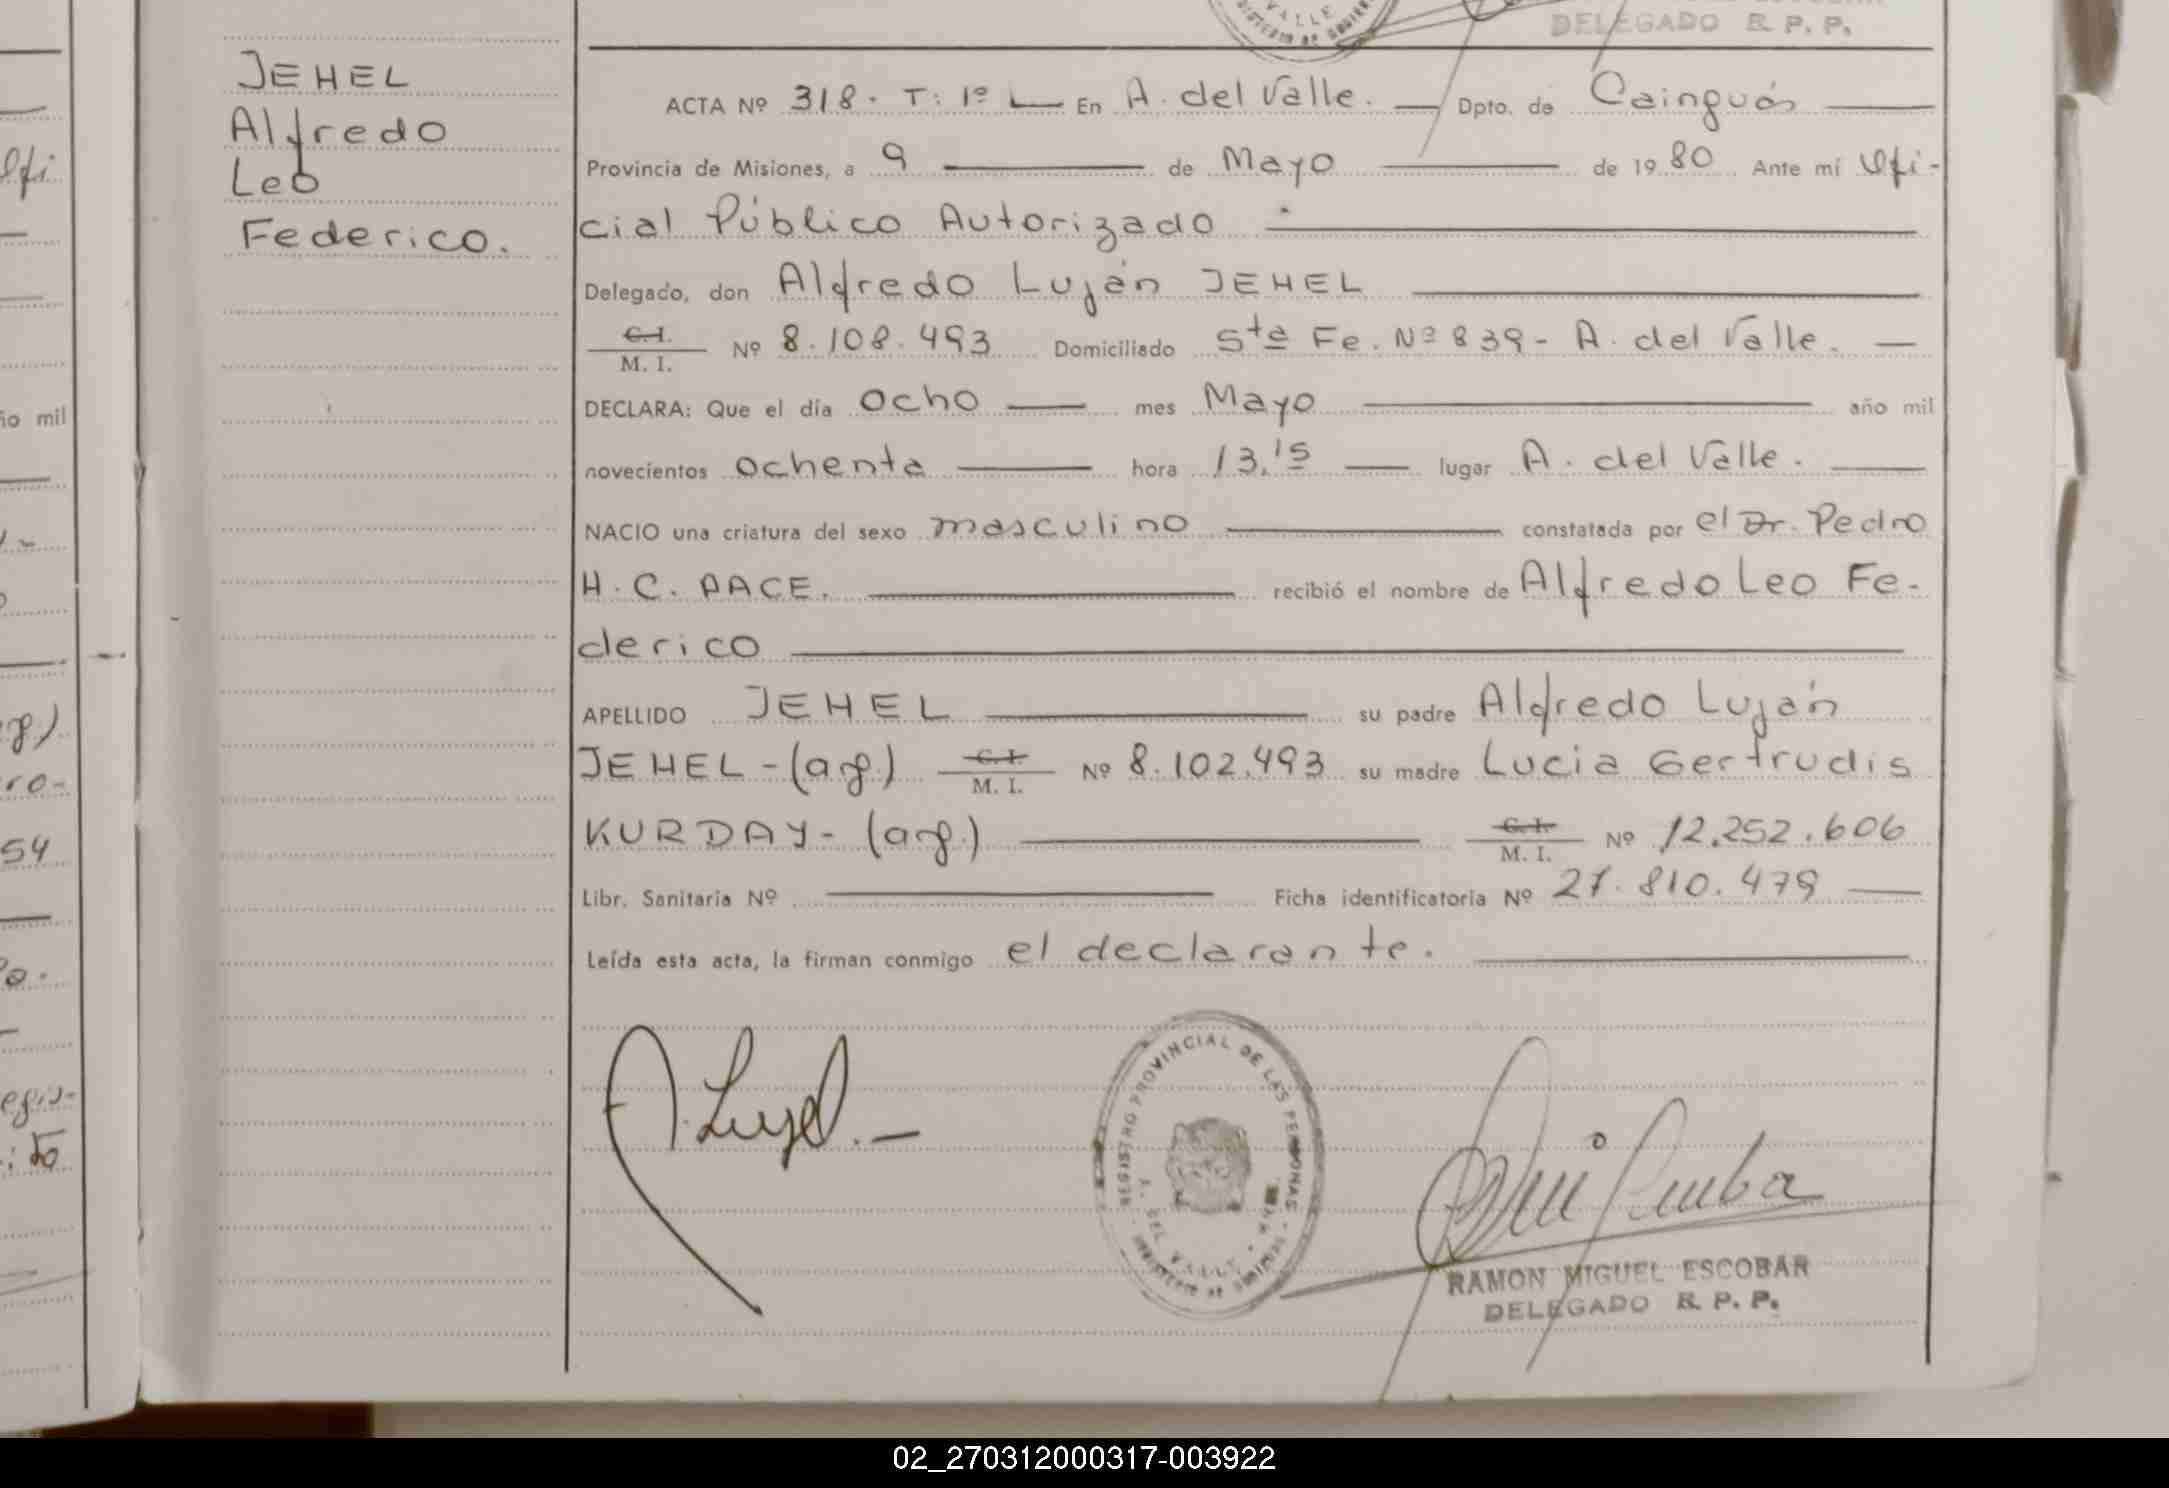 VALLE
DELEGADO R. P. P.
JEHEL
Alfredo
Leo
Federico.
ACTA Nº 318. T: 1º L En A. del Valle. Dpto. de Cainguás
Provincia de Misiones, a 9 de Mayo de 1980 Ante mí Ofi-
cial Público Autorizado
Delegado, don Alfredo Luján JEHEL
C.I.
M. I. Nº 8.108.493 Domiciliado Sta Fe. Nº 839- A. del Valle.
DECLARA: Que el día ocho mes Mayo año mil
novecientos ochenta hora 13,15 lugar A. del Valle.
NACIO una criatura del sexo masculino constatada por el Dr. Pedro
H. C. PACE. recibió el nombre de Alfredo Leo Fe-
derico
APELLIDO JEHEL su padre Alfredo Luján
JEHEL-(arg.) C.I. M. I. Nº 8.102.493 su madre Lucia Gertrudis
KURDAY-(arg.) C.I. M. I. Nº 12.252.606
Libr. Sanitaria Nº Ficha identificatoria Nº 27.810.479
Leída esta acta, la firman conmigo el declarante.
REGISTRO PROVINCIAL DE LAS PERSONAS
A. DEL VALLE
RAMON MIGUEL ESCOBAR
DELEGADO R. P. P.
ño mil
54
02_270312000317-003922